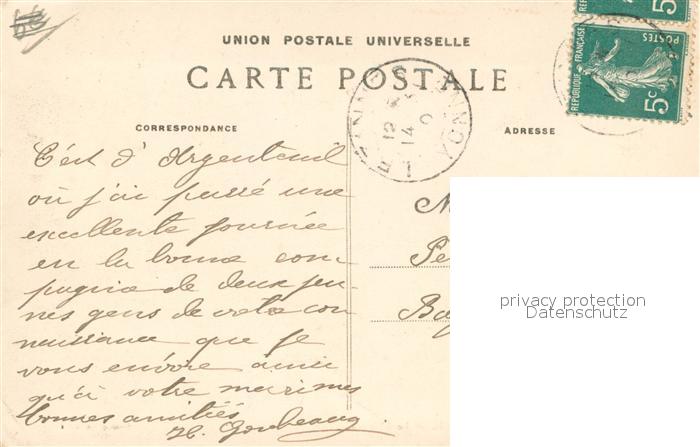 UNION POSTALE UNIVERSELLE
CARTE POSTALE
CORRESPONDANCE
ADRESSE
REPUBLIQUE FRANÇAISE
POSTES
5c
C'est d'Argenteuil
où j'ai passé une
excellente journée
en la bonne com
pagnie de deux jeu-
nes gens de votre con
naissance que je
vous envoie ainsi
qu'à votre mari mes
bonnes amitiés
H.
M
Pe
Ba
privacy protection
Datenschutz